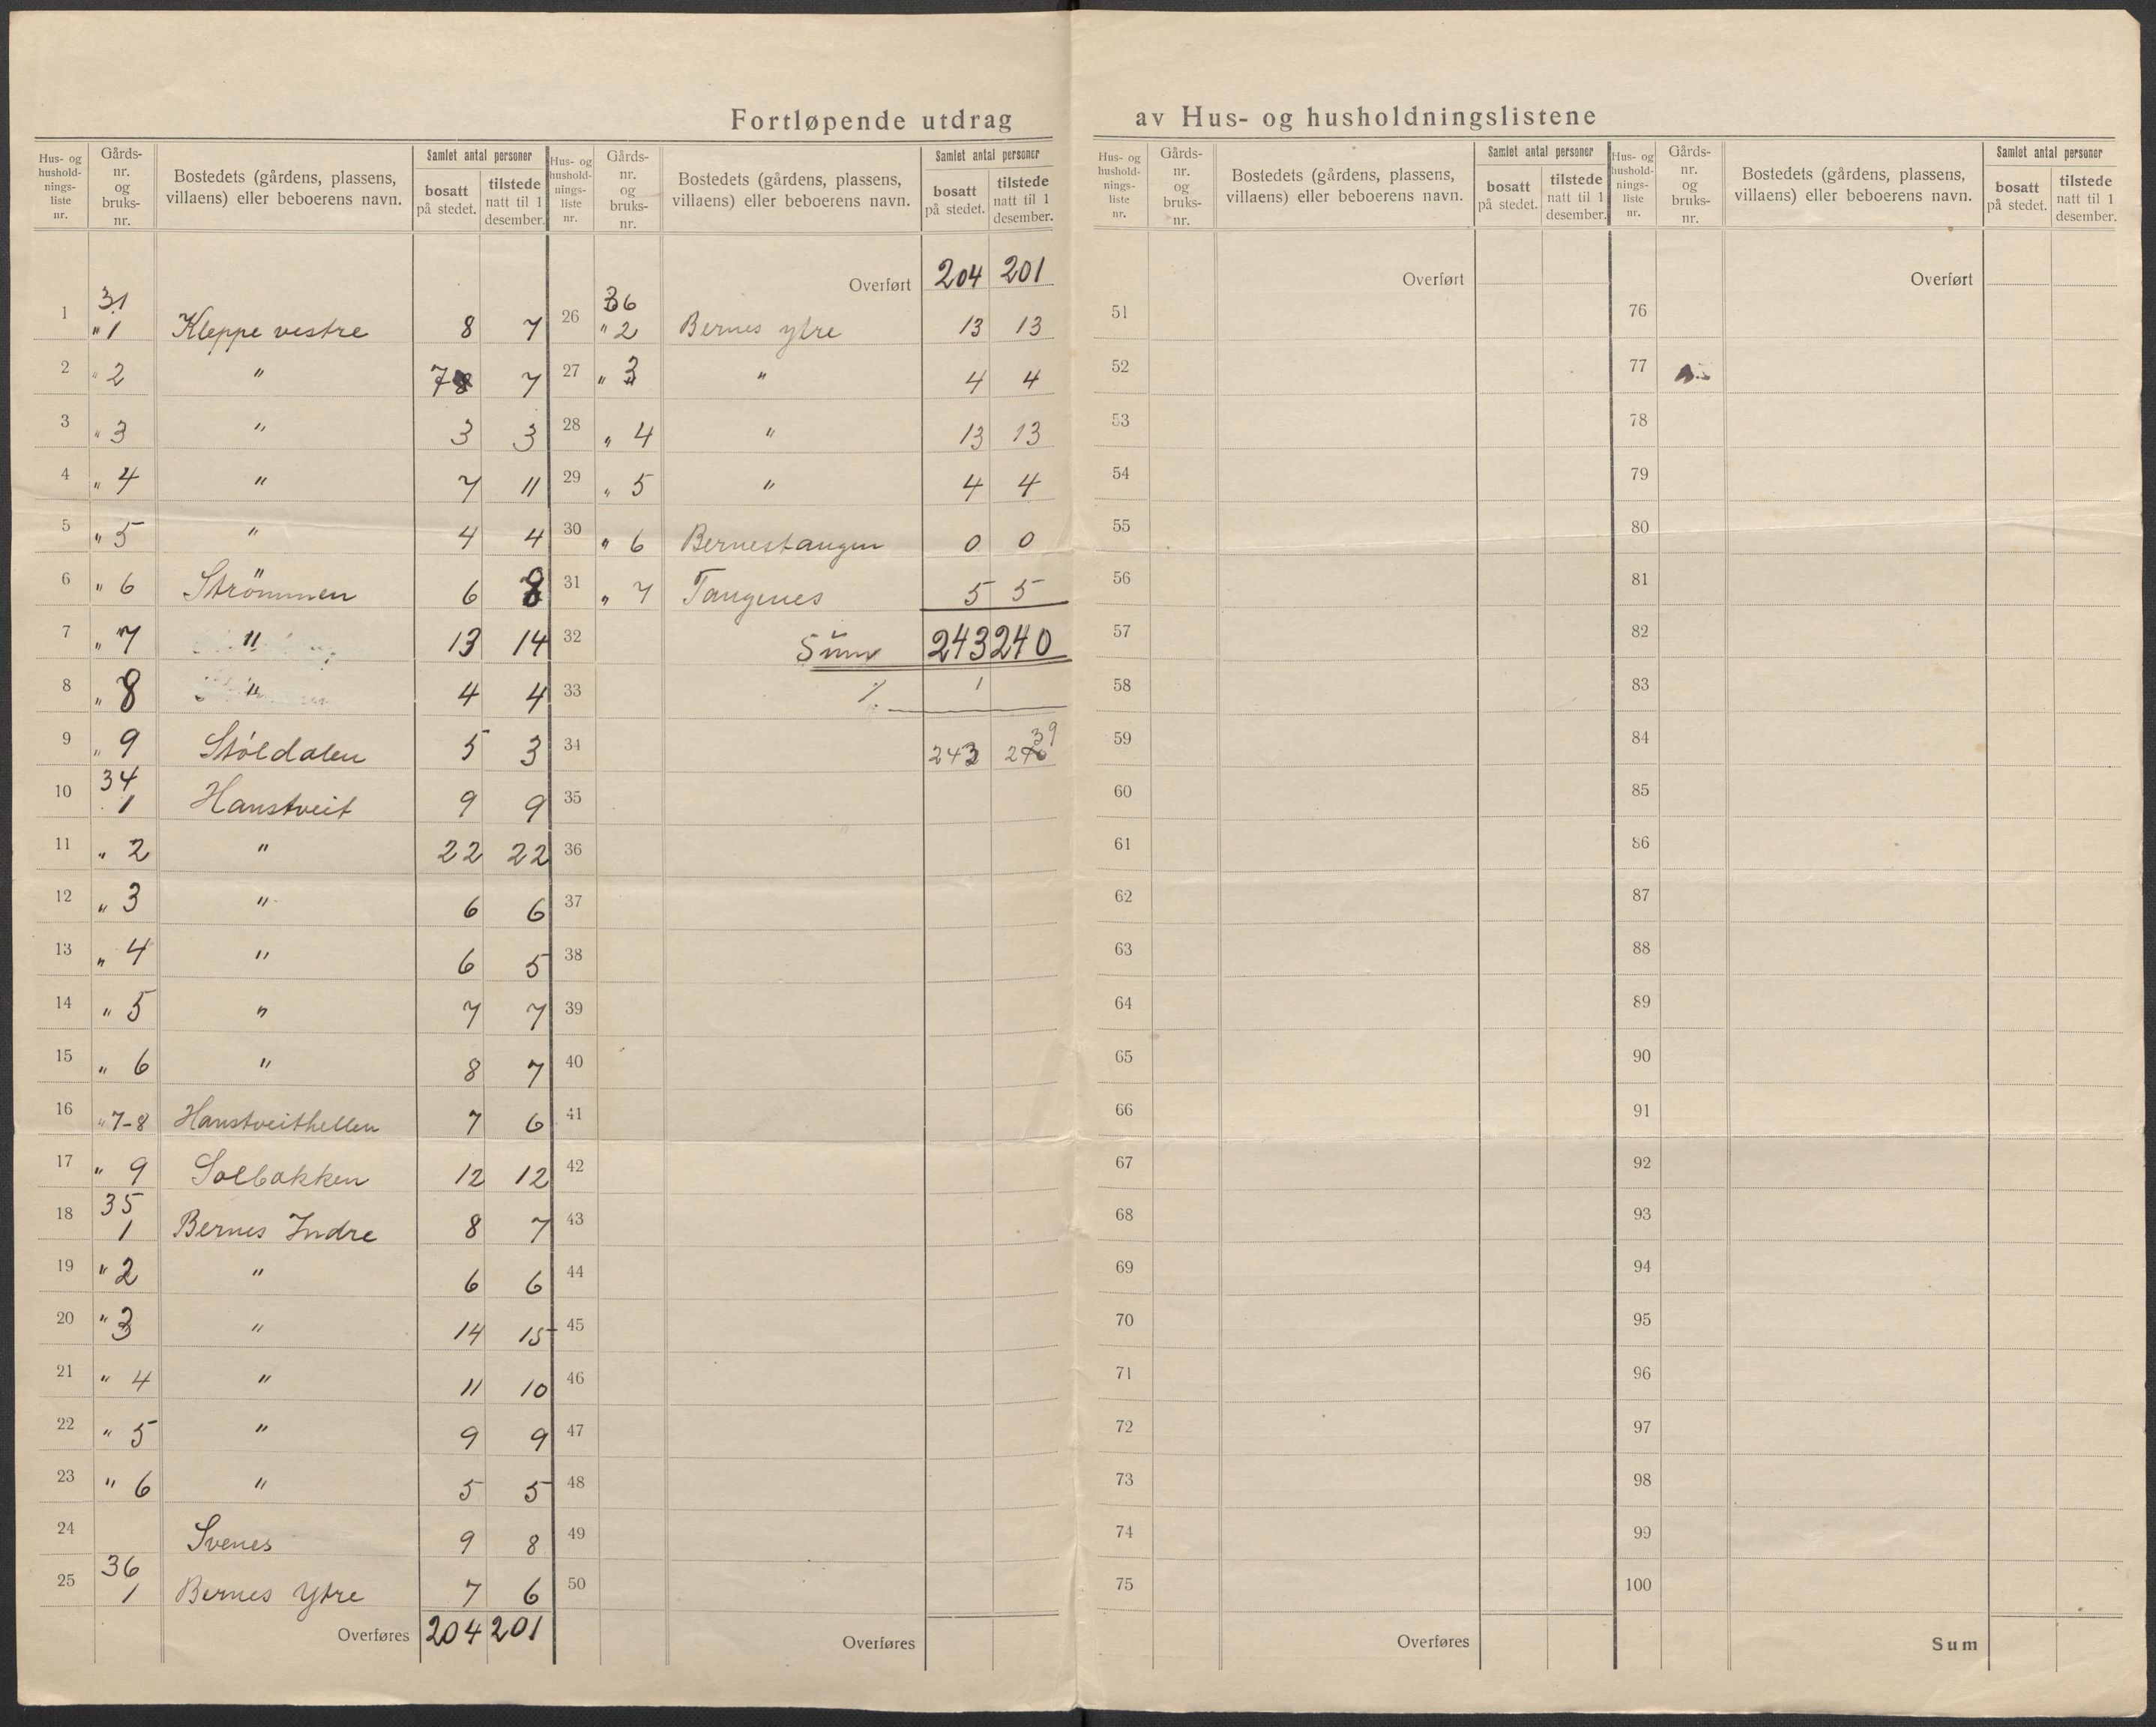 Fortløpende utdrag av Hus- og husholdningslistene
Hus- og hushold-nings-liste nr. Gårds-nr. og bruks-nr. Bostedets (gårdens, plassens, villaens) eller beboerens navn. Samlet antal personer bosatt på stedet. tilstede natt til 1 desember.
1 31 " 1 Kleppe vestre 8 7
2 " 2 " 7 8 7
3 " 3 " 3 3
4 " 4 " 7 11
5 " 5 " 4 4
6 " 6 Strömmen 6 8
7 " 7 " 13 14
8 " 8 " 4 4
9 " 9 Stöldalen 5 3
10 34 1 Hanstveit 9 9
11 " 2 " 22 22
12 " 3 " 6 6
13 " 4 " 6 5
14 " 5 " 7 7
15 " 6 " 8 7
16 " 7-8 Hanstveithellen 7 6
17 " 9 Solbakken 12 12
18 35 1 Bernes Indre 8 7
19 " 2 " 6 6
20 " 3 " 14 15
21 " 4 " 11 10
22 " 5 " 9 9
23 " 6 " 5 5
24 Svenes 9 8
25 36 1 Bernes Ytre 7 6
Overføres 204 201
Hus- og hushold-nings-liste nr. Gårds-nr. og bruks-nr. Bostedets (gårdens, plassens, villaens) eller beboerens navn. Samlet antal personer bosatt på stedet. tilstede natt til 1 desember.
Overført 204 201
26 36 " 2 Bernes ytre 13 13
27 " 3 " 4 4
28 " 4 " 13 13
29 " 5 " 4 4
30 " 6 Bernestangen 0 0
31 " 7 Tangenes 5 5
32 Sum 243 240
33 % 1
34 243 240 39
35
36
37
38
39
40
41
42
43
44
45
46
47
48
49
50
Overføres
Hus- og hushold-nings-liste nr. Gårds-nr. og bruks-nr. Bostedets (gårdens, plassens, villaens) eller beboerens navn. Samlet antal personer bosatt på stedet. tilstede natt til 1 desember.
Overført
51
52
53
54
55
56
57
58
59
60
61
62
63
64
65
66
67
68
69
70
71
72
73
74
75
Overføres
Hus- og hushold-nings-liste nr. Gårds-nr. og bruks-nr. Bostedets (gårdens, plassens, villaens) eller beboerens navn. Samlet antal personer bosatt på stedet. tilstede natt til 1 desember.
Overført
76
77
78
79
80
81
82
83
84
85
86
87
88
89
90
91
92
93
94
95
96
97
98
99
100
Sum